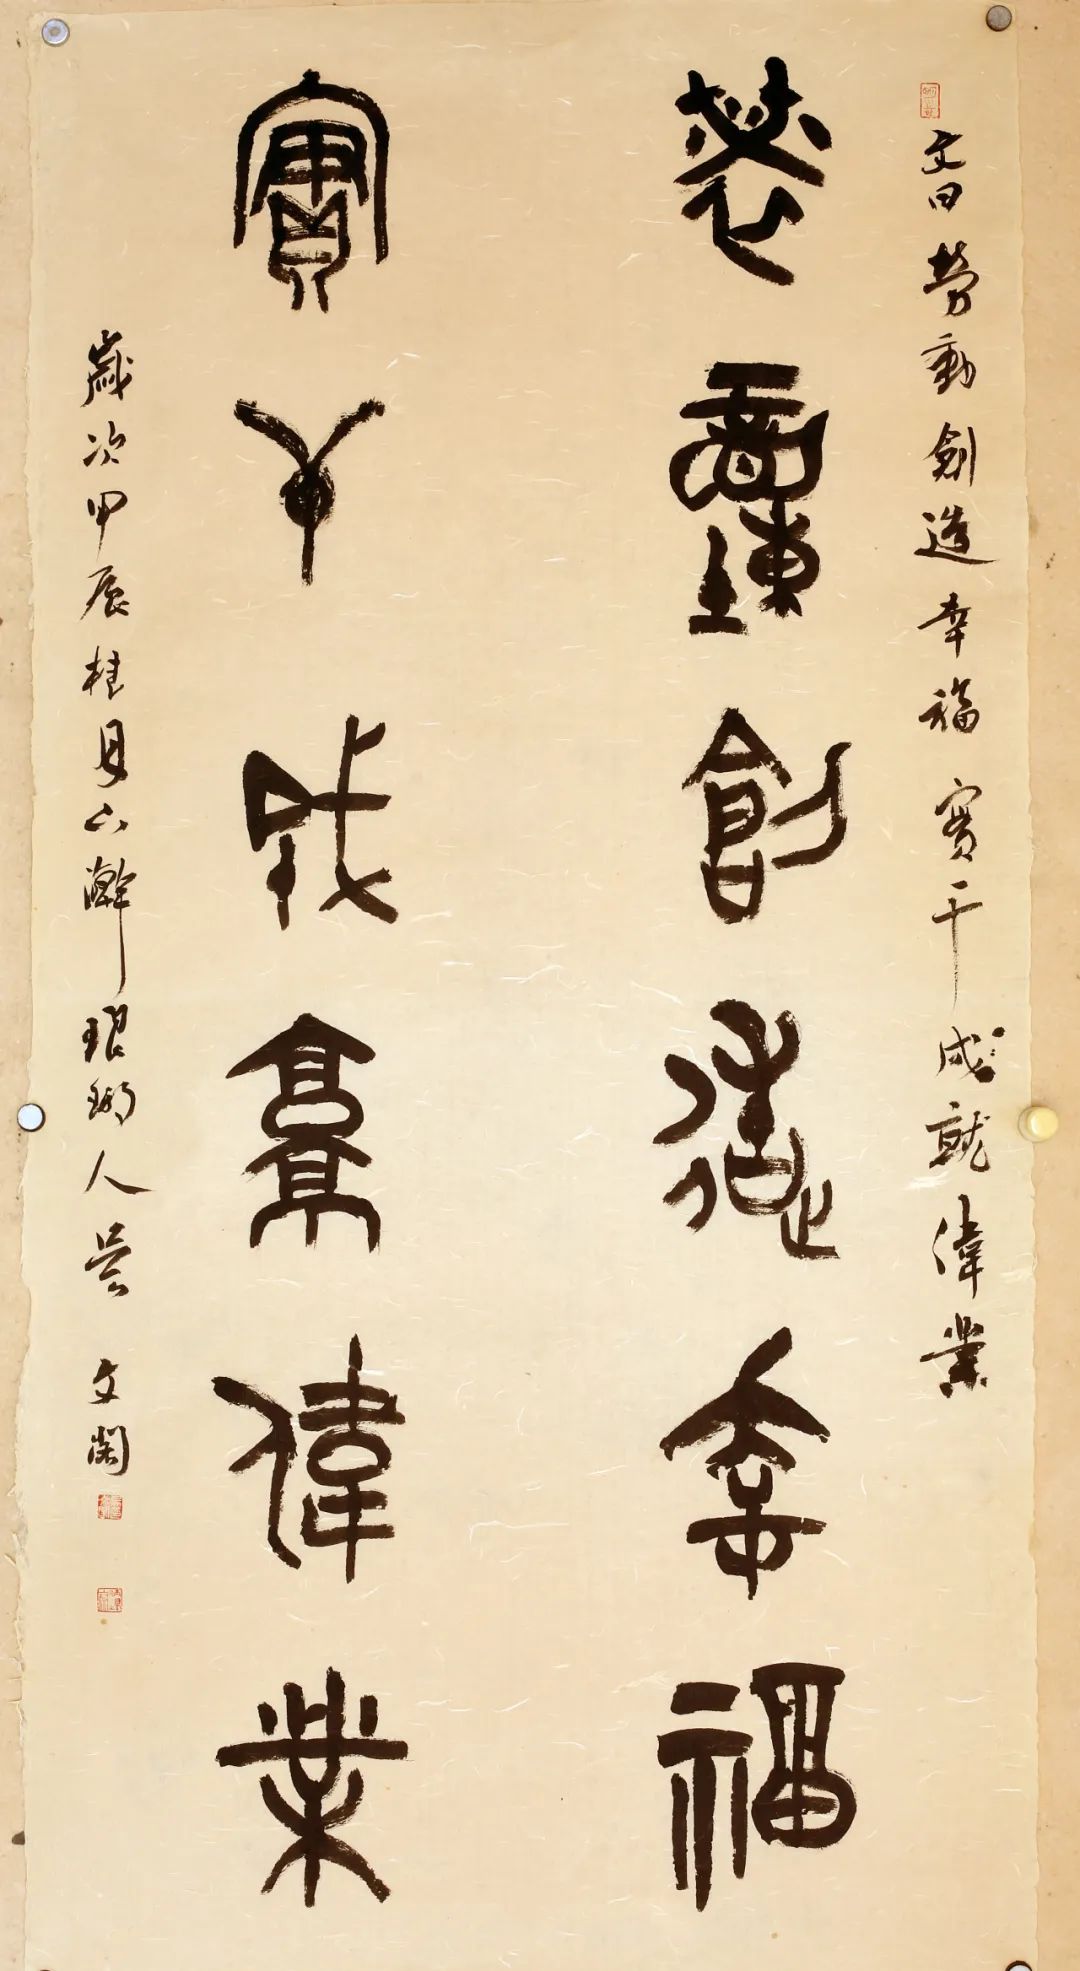 文曰勞動創造幸福實干成就偉業
勞動創造幸福
實干成就偉業
歲次甲辰桂月山瀚琅琊人吳文閣